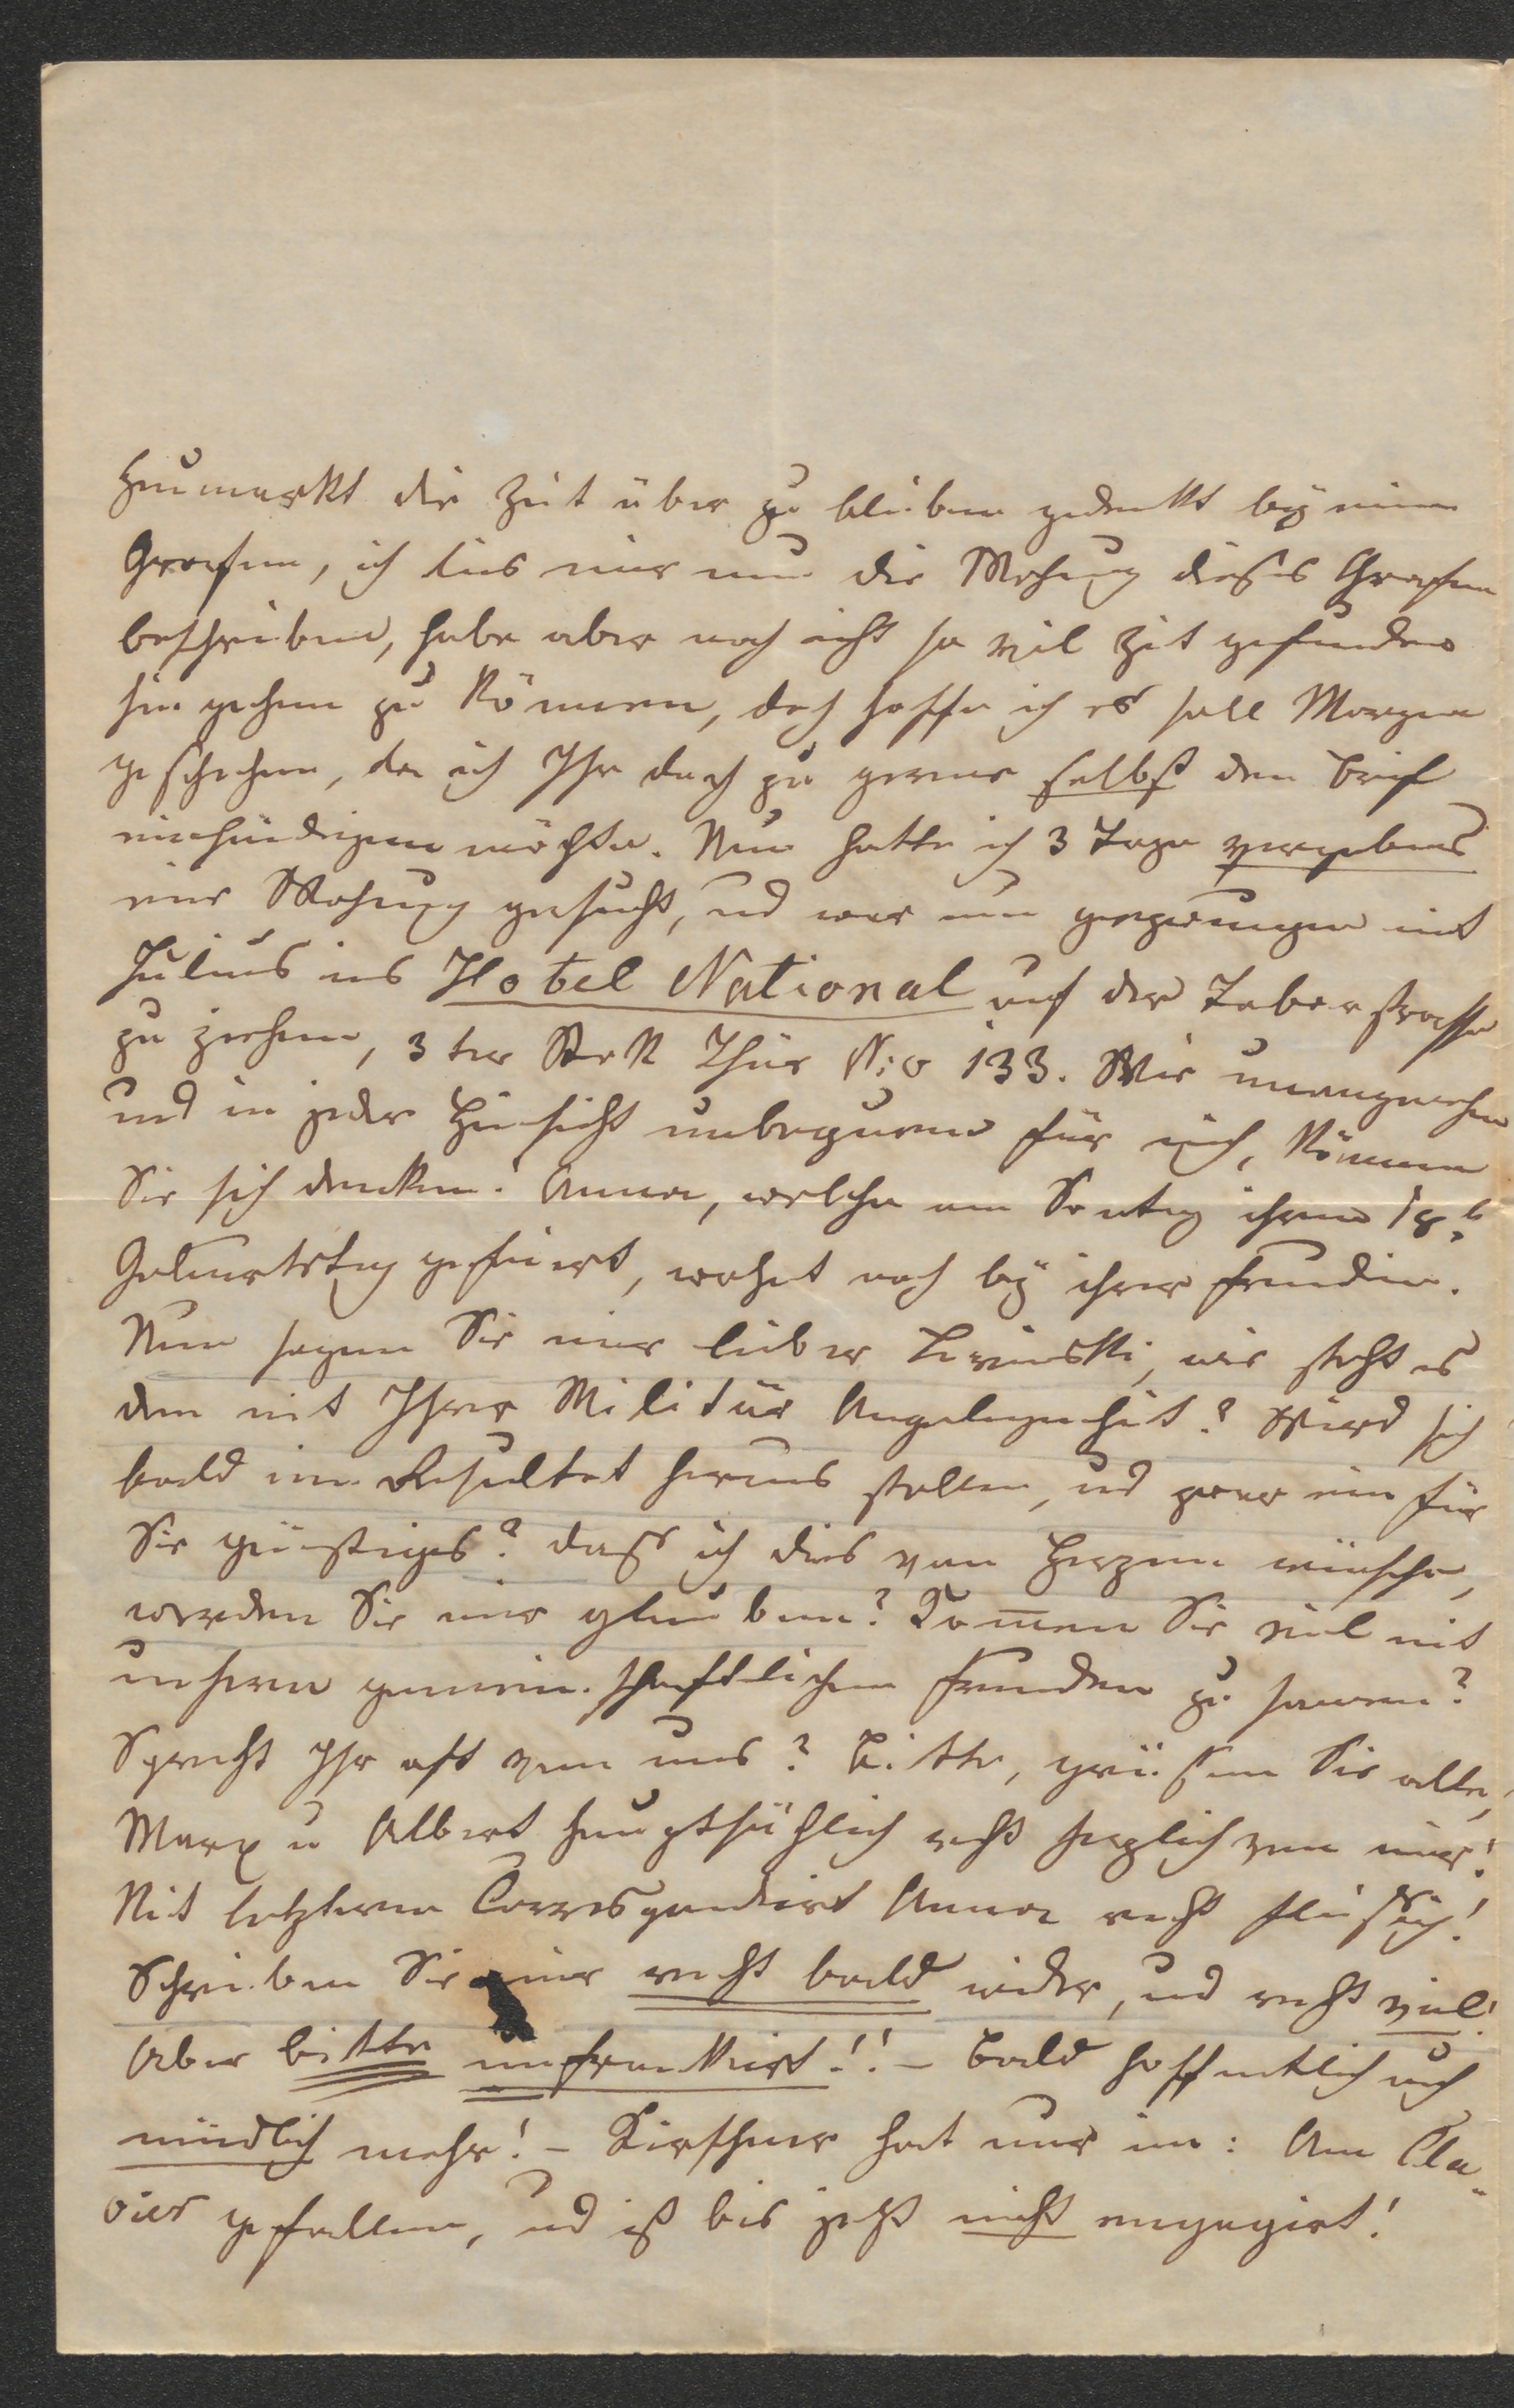 Heumarkt die Zeit über zu bleiben gedenkt bey einem
Grafen, ich lies mir nun die Wohnung dieses Grafen
beschreiben, habe aber noch nicht so viel Zeit gefunden
hin gehen zu können, doch hoffe ich es soll Morgen
geschehen, da ich Ihr doch zu gerne selbst den Brief
einhändigen möchte. Nun hatte ich 3 Tage vergebens
eine Wohnung gesucht, und war nun gezwungen mit
Julius ins Hotel National auf der Taborstrasse
zu ziehen, 3ter Stok Thür No 133. Wie unangenehm
und in jeder Hinsicht unbequem für mich, können
Sie sich denken! Anna, welche am Sontag ihren 18t
Geburtstag gefeiert, wohnt noch bey ihrer Freundin.
Nun sagen Sie mir lieber Lewinski, wie steht es
den mit Ihrer Militär Angelegenheit? Wird sich
bald ein Resultat heraus stellen, und zwar ein für
Sie günstiges? Dass ich dies von Herzen wünsche,
werden Sie mir glauben? Komen Sie viel mit
unseren gemeinschaftlichen Freunden zu samen?
Sprecht Ihr oft von uns? Bitte, grüssen Sie alle,
Marx u Albert hauptsächlich recht herzlich von mir!
Mit letzteren Correspondirt Anna recht fleissig!
Schreiben Sie mir recht bald wieder, und recht viel!
Aber bitte unfrankirt!! – Bald hoffentlich auch
mündlich mehr! – Kirschner hat nur im: Am Cla-
vier gefallen, und ist bis jetzt nicht engagirt!